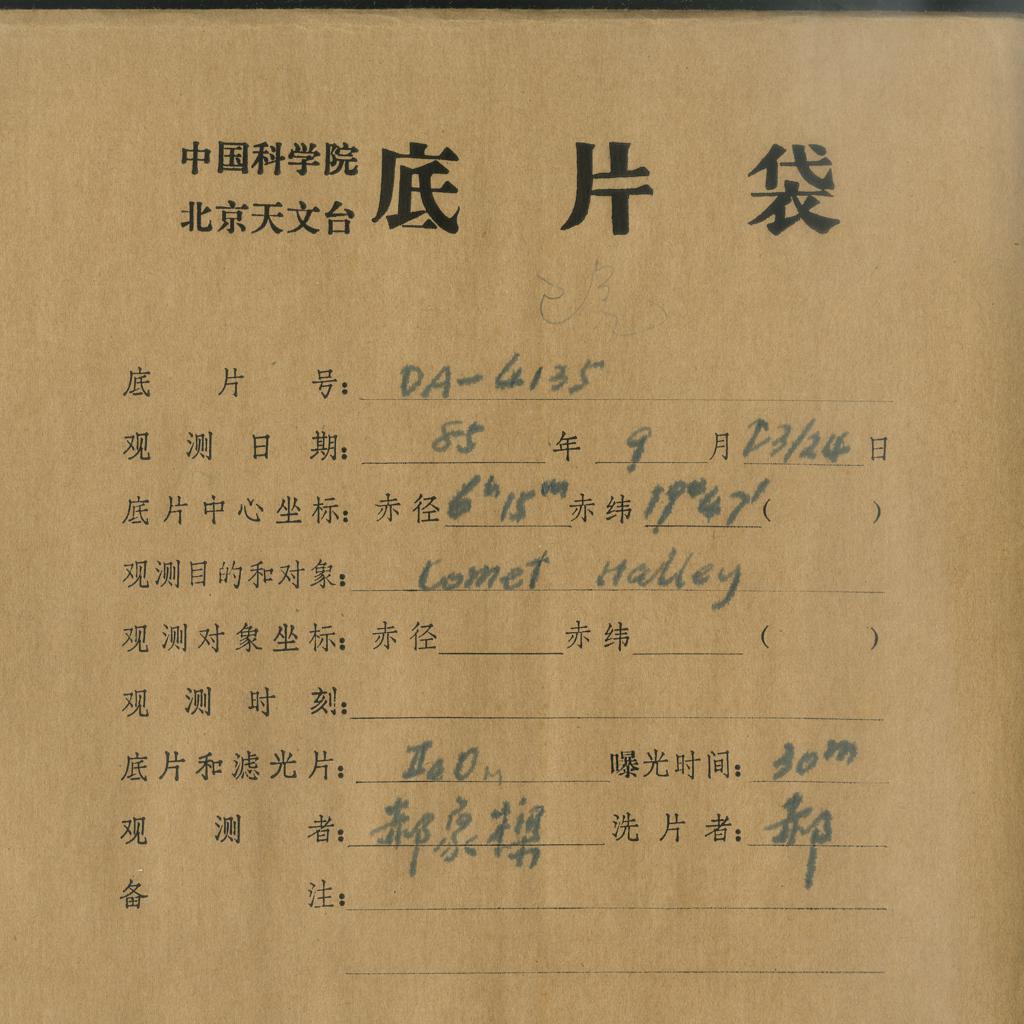 中国科学院
北京天文台 底片袋
底片号: DA-4135
观测日期: 85年 9月 23/24日
底片中心坐标: 赤径 6h 15m 赤纬 19°47′ ( )
观测目的和对象: Comet Halley
观测对象坐标: 赤径 赤纬 ( )
观测时刻:
底片和滤光片: IIaO 曝光时间: 30m
观测者: 郝象樑 洗片者: 郝
备注: